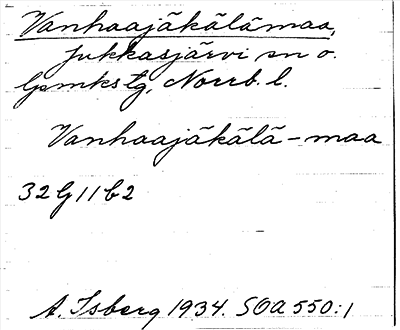 Vanhaajäkälämaa,
Jukkasjärvi sn o.
lpmkstg, Norrb. l.
Vanhaajäkälä-maa
32 G 11 b 2
A. Isberg 1934. SOA 550:1